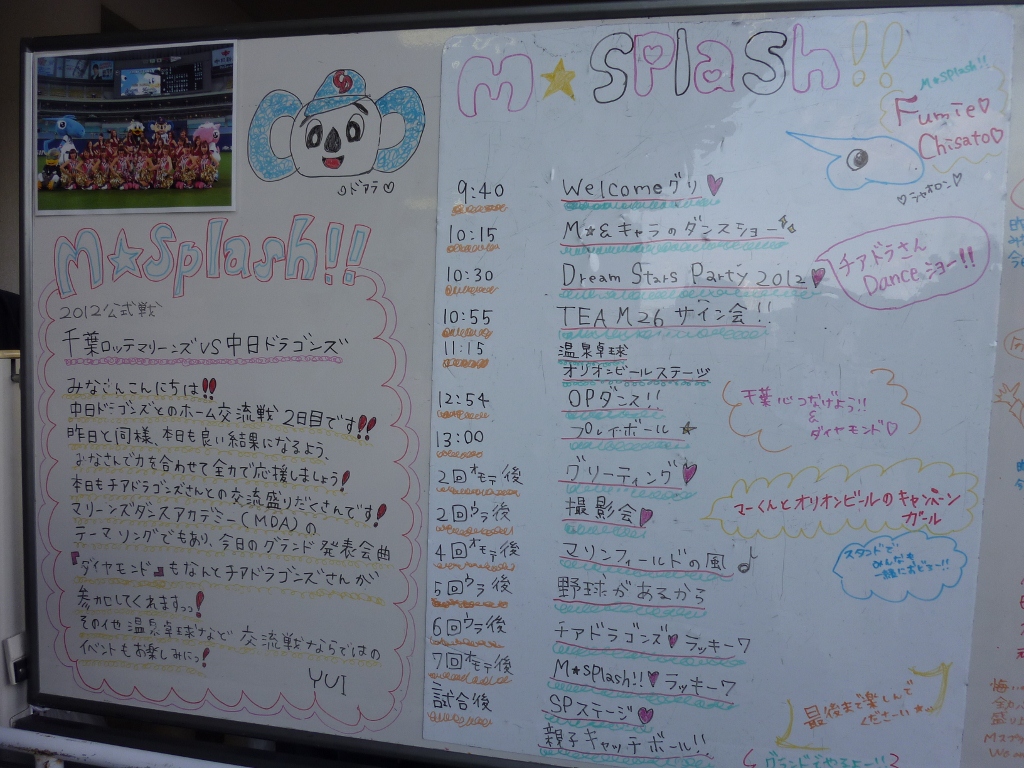 ♡ドアラ♡
M★Splash!!
2012公式戦
千葉ロッテマリーンズVS中日ドラゴンズ
みなさんこんにちは!!
中日ドラゴンズとのホーム交流戦2日目です!!
昨日と同様、本日も良い結果になるよう、
みなさんで力を合わせて全力で応援しましょう!
本日もチアドラゴンズさんとの交流盛りだくさんです!
マリーンズダンスアカデミー(MDA)の
テーマソングでもあり、今日のグランド発表会曲
『ダイヤモンド』もなんとチアドラゴンズさんが
参加してくれますっっ!
その他温泉卓球など交流戦ならではの
イベントもお楽しみにっ!
YUI
M★Splash!!
M★Splash!!
Fumie♡
Chisato♡
♡シャオロン♡
9:40 Welcomeグリ♥
10:15 M★&キャラのダンスショー
10:30 Dream Stars Party 2012♥
チアドラさん
Danceショー!!
10:55 TEAM26 サイン会!!
11:15 温泉卓球
オリオンビールステージ
12:54 OPダンス!!
13:00 プレイボール★
千葉心つなげよう!!
&
ダイヤモンド♡
2回オモテ後 グリーティング♥
2回ウラ後 撮影会♥
マーくんとオリオンビールのキャンペーン
ガール
4回オモテ後 マリンフィールドの風♪
スタンドで
みんなも
一緒におどろー!!
5回ウラ後 野球があるから
6回ウラ後 チアドラゴンズ♥ラッキー7
7回オモテ後 M★Splash!!♥ラッキー7
試合後 SPステージ♥
親子キャッチボール!!
最後まで楽しんで
ください☆